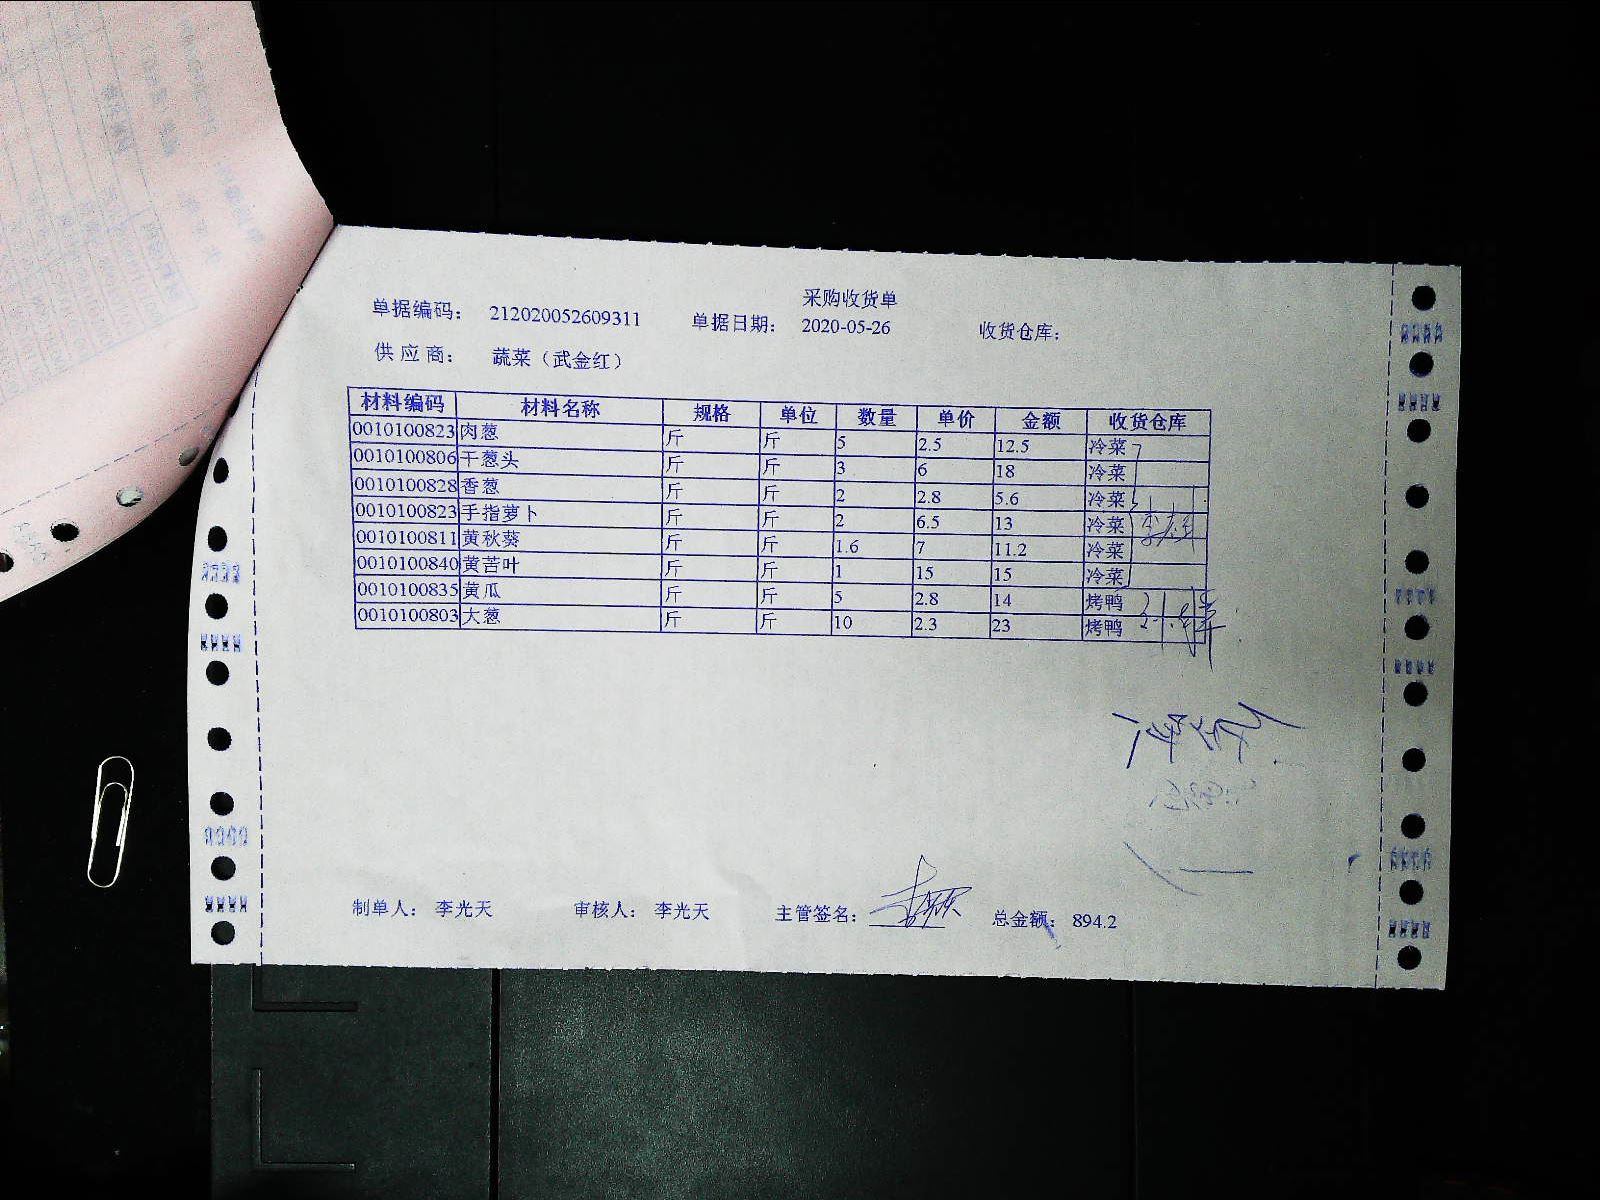 采购收货单
单据编码： 212020052609311 单据日期： 2020-05-26 收货仓库：
供 应 商： 蔬菜（武金红）
材料编码 材料名称 规格 单位 数量 单价 金额 收货仓库
0010100823 肉葱 斤 斤 5 2.5 12.5 冷菜
0010100806 干葱头 斤 斤 3 6 18 冷菜
0010100828 香葱 斤 斤 2 2.8 5.6 冷菜
0010100823 手指萝卜 斤 斤 2 6.5 13 冷菜
0010100811 黄秋葵 斤 斤 1.6 7 11.2 冷菜
0010100840 黄苦叶 斤 斤 1 15 15 冷菜
0010100835 黄瓜 斤 斤 5 2.8 14 烤鸭
0010100803 大葱 斤 斤 10 2.3 23 烤鸭
制单人： 李光天 审核人： 李光天 主管签名： 总金额： 894.2